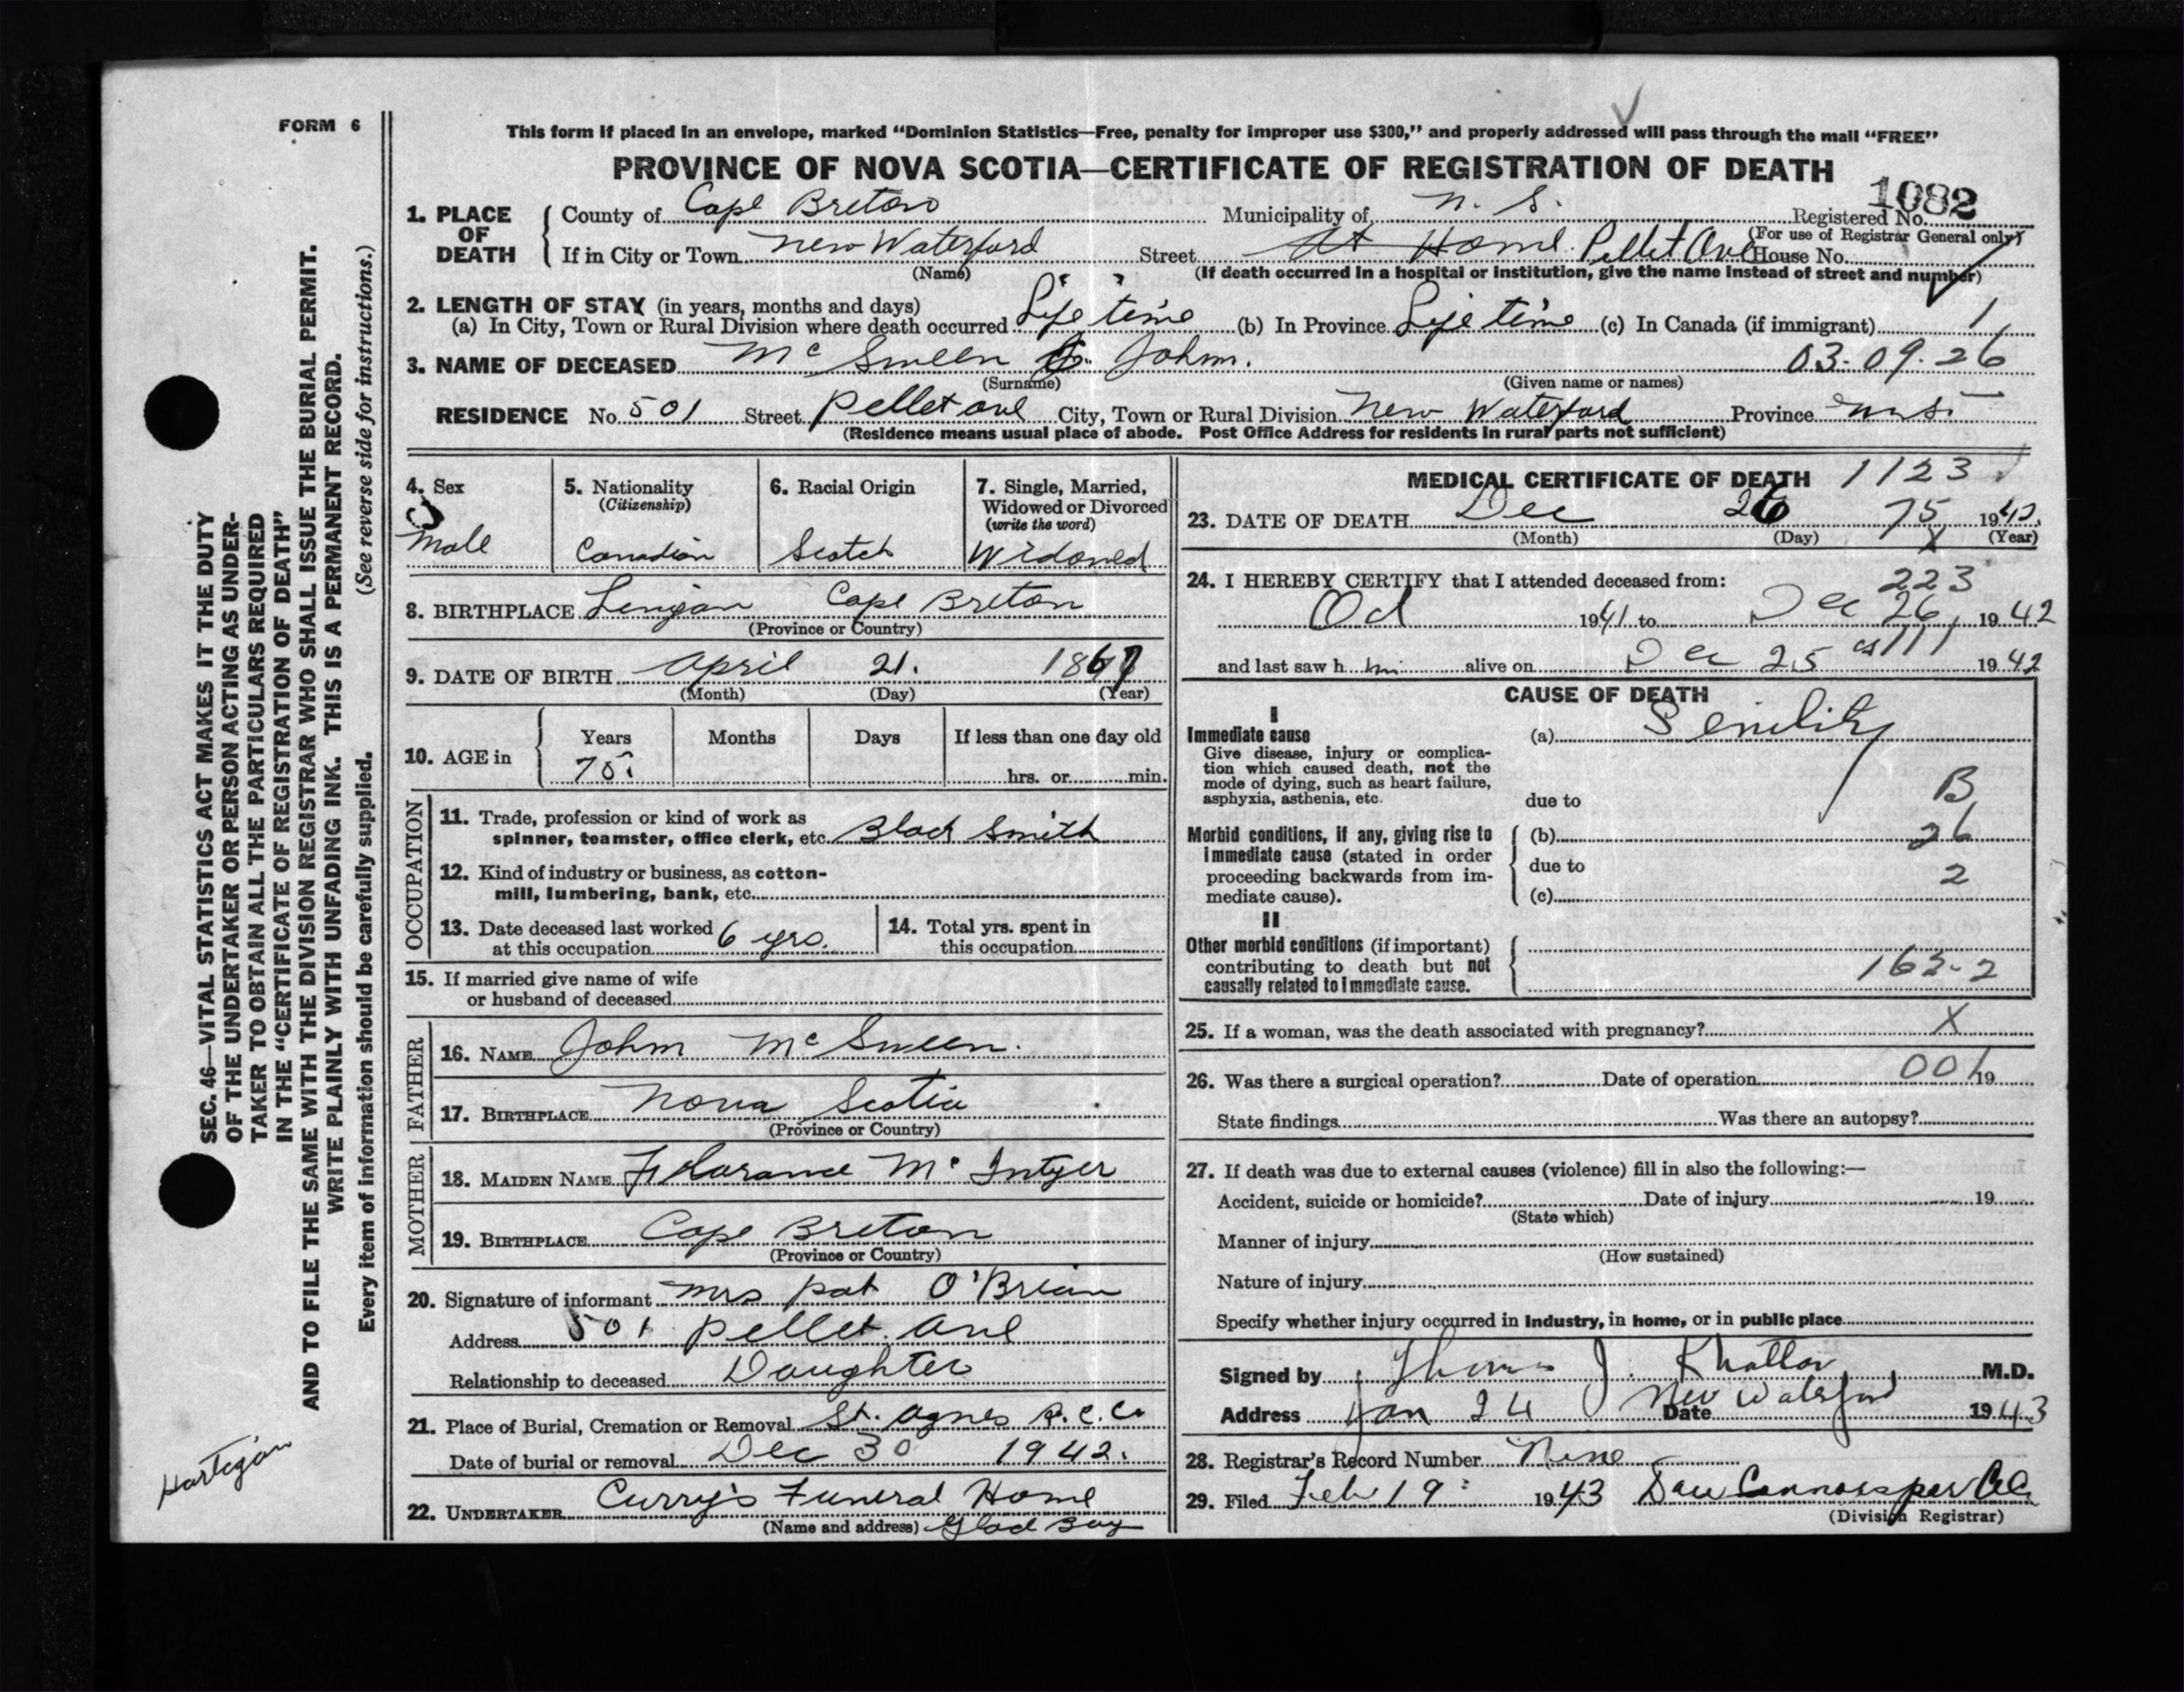 FORM 6
This form if placed in an envelope, marked “Dominion Statistics—Free, penalty for improper use $300,” and properly addressed will pass through the mail “FREE”
PROVINCE OF NOVA SCOTIA—CERTIFICATE OF REGISTRATION OF DEATH
1082
1. PLACE OF DEATH County of Cape Breton Municipality of N. S. Registered No.
(For use of Registrar General only)
If in City or Town New Waterford Street At Home Pellet Ave House No.
(Name) (If death occurred in a hospital or institution, give the name instead of street and number)
2. LENGTH OF STAY (in years, months and days)
(a) In City, Town or Rural Division where death occurred Life time (b) In Province Life time (c) In Canada (if immigrant) 1
3. NAME OF DECEASED Mc Sween John. 03-09-26
(Surname) (Given name or names)
RESIDENCE No. 501 Street Pellet ave City, Town or Rural Division New Waterford Province N.S.
(Residence means usual place of abode. Post Office Address for residents in rural parts not sufficient)
4. Sex
Male
5. Nationality
(Citizenship)
Canadian
6. Racial Origin
Scotch
7. Single, Married,
Widowed or Divorced
(write the word)
Widowed
8. BIRTHPLACE Lingan Cape Breton
(Province or Country)
9. DATE OF BIRTH April 21. 1867
(Month) (Day) (Year)
10. AGE in Years Months Days If less than one day old
75 hrs. or min.
OCCUPATION
11. Trade, profession or kind of work as
spinner, teamster, office clerk, etc. Black Smith
12. Kind of industry or business, as cotton-
mill, lumbering, bank, etc.
13. Date deceased last worked
at this occupation 6 yrs.
14. Total yrs. spent in
this occupation
15. If married give name of wife
or husband of deceased
FATHER
16. NAME John Mc Sween.
17. BIRTHPLACE Nova Scotia
(Province or Country)
MOTHER
18. MAIDEN NAME Florance Mc Intyer
19. BIRTHPLACE Cape Breton
(Province or Country)
20. Signature of informant Mrs Pat O'Brian
Address 501 Pellet. Ave
Relationship to deceased Daughter
21. Place of Burial, Cremation or Removal St. Agnes R. C. C.
Date of burial or removal Dec 30 1942.
22. UNDERTAKER Curry's Funeral Home
(Name and address) Glace Bay
MEDICAL CERTIFICATE OF DEATH 1123
23. DATE OF DEATH Dec 26 75 1942.
(Month) (Day) X (Year)
24. I HEREBY CERTIFY that I attended deceased from: 223
Oct 1941 to Dec 26, 1942
and last saw h im alive on Dec 25 111 1942
CAUSE OF DEATH
I
Immediate cause (a) Senility
Give disease, injury or complica-
tion which caused death, not the
mode of dying, such as heart failure,
asphyxia, asthenia, etc. due to B
Morbid conditions, if any, giving rise to (b) 26
immediate cause (stated in order
proceeding backwards from im- due to 2
mediate cause). (c)
II
Other morbid conditions (if important)
contributing to death but not
causally related to immediate cause. 162-2
25. If a woman, was the death associated with pregnancy? X
26. Was there a surgical operation? Date of operation 001 19
State findings Was there an autopsy?
27. If death was due to external causes (violence) fill in also the following:—
Accident, suicide or homicide? Date of injury 19
(State which)
Manner of injury
(How sustained)
Nature of injury
Specify whether injury occurred in Industry, in home, or in public place
Signed by Thomas J. Khattar M.D.
Address Jan 24 New Waterford Date 1943
28. Registrar's Record Number Nine
29. Filed Feb 19 1943 Dan
(Division Registrar)
SEC. 46—VITAL STATISTICS ACT MAKES IT THE DUTY
OF THE UNDERTAKER OR PERSON ACTING AS UNDER-
TAKER TO OBTAIN ALL THE PARTICULARS REQUIRED
IN THE “CERTIFICATE OF REGISTRATION OF DEATH”
AND TO FILE THE SAME WITH THE DIVISION REGISTRAR WHO SHALL ISSUE THE BURIAL PERMIT.
WRITE PLAINLY WITH UNFADING INK. THIS IS A PERMANENT RECORD.
Every item of information should be carefully supplied. (See reverse side for instructions.)
Hartigan